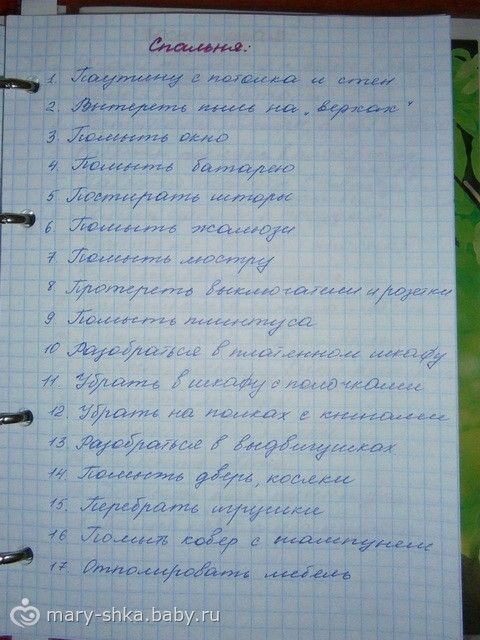 Спальня:
1. Паутину с потолка и стен
2. Вытереть пыль на „верхах"
3. Помыть окно
4. Помыть батарею
5 Постирать шторы
6. Помыть жалюзи
7. Помыть люстру
8 Протереть выключатели и розетки
9. Помыть плинтуса
10 Разобраться в платяном шкафу
11. Убрать в шкафу с полочками
12. Убрать на полках с книгами
13. Разобраться в выдвигушках
14. Помыть дверь, косяки
15. Перебрать игрушки
16 Помыть ковёр с шампунем
17. Отполировать мебель
mary-shka.baby.ru